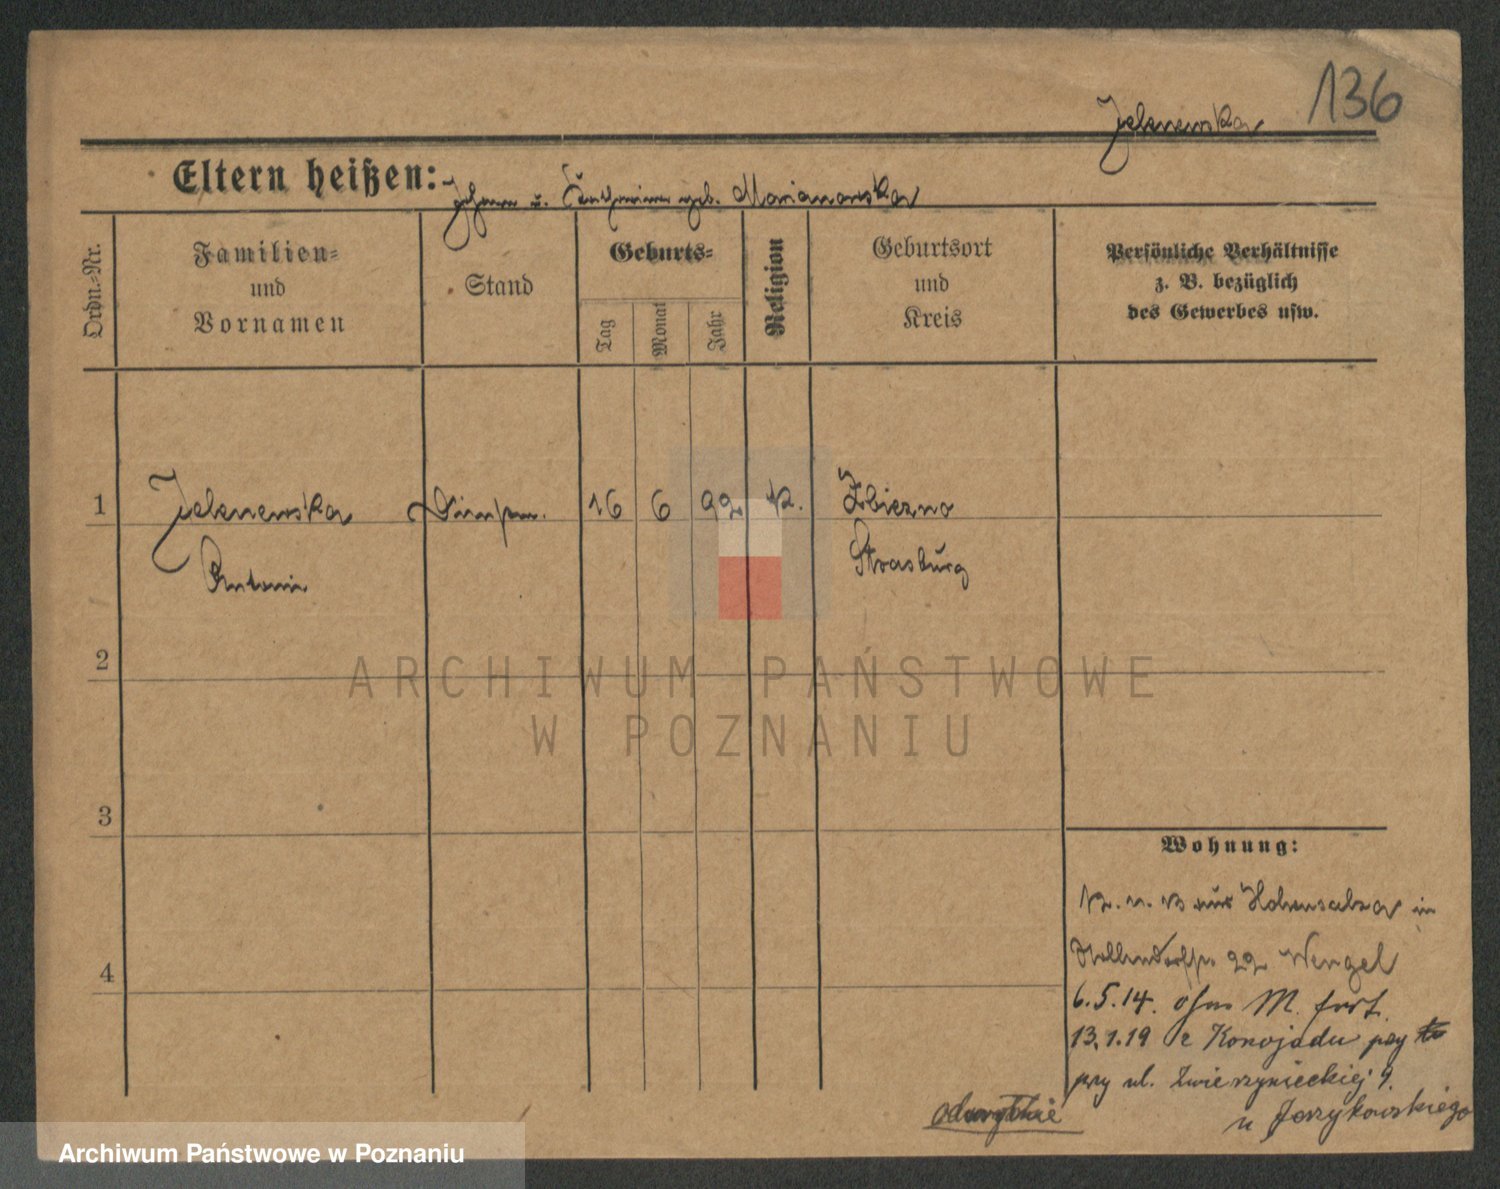 136
Jelenewska
Eltern heißen: Johann u. Katharina geb. Marianowska
Ordn.-Nr.
Familien-
und
Vornamen
Stand
Geburts-
Tag
Monat
Jahr
Religion
Geburtsort
und
Kreis
Persönliche Verhältnisse
z. B. bezüglich
des Gewerbes usw.
1 Jelenewska 16 6 92 k. Zbiczno
Antonie Strasburg
2
ARCHIWUM PAŃSTWOWE
W POZNANIU
3
4
Wohnung:
12. 11. 13 aus Hohensalza in
22 Wengel
6.5.14. ohne M. fort.
13.1.19 z Konojadu przy
przy ul. Zwierzynieckiej 9.
u Jerzykowskiego
odwrotnie
Archiwum Państwowe w Poznaniu